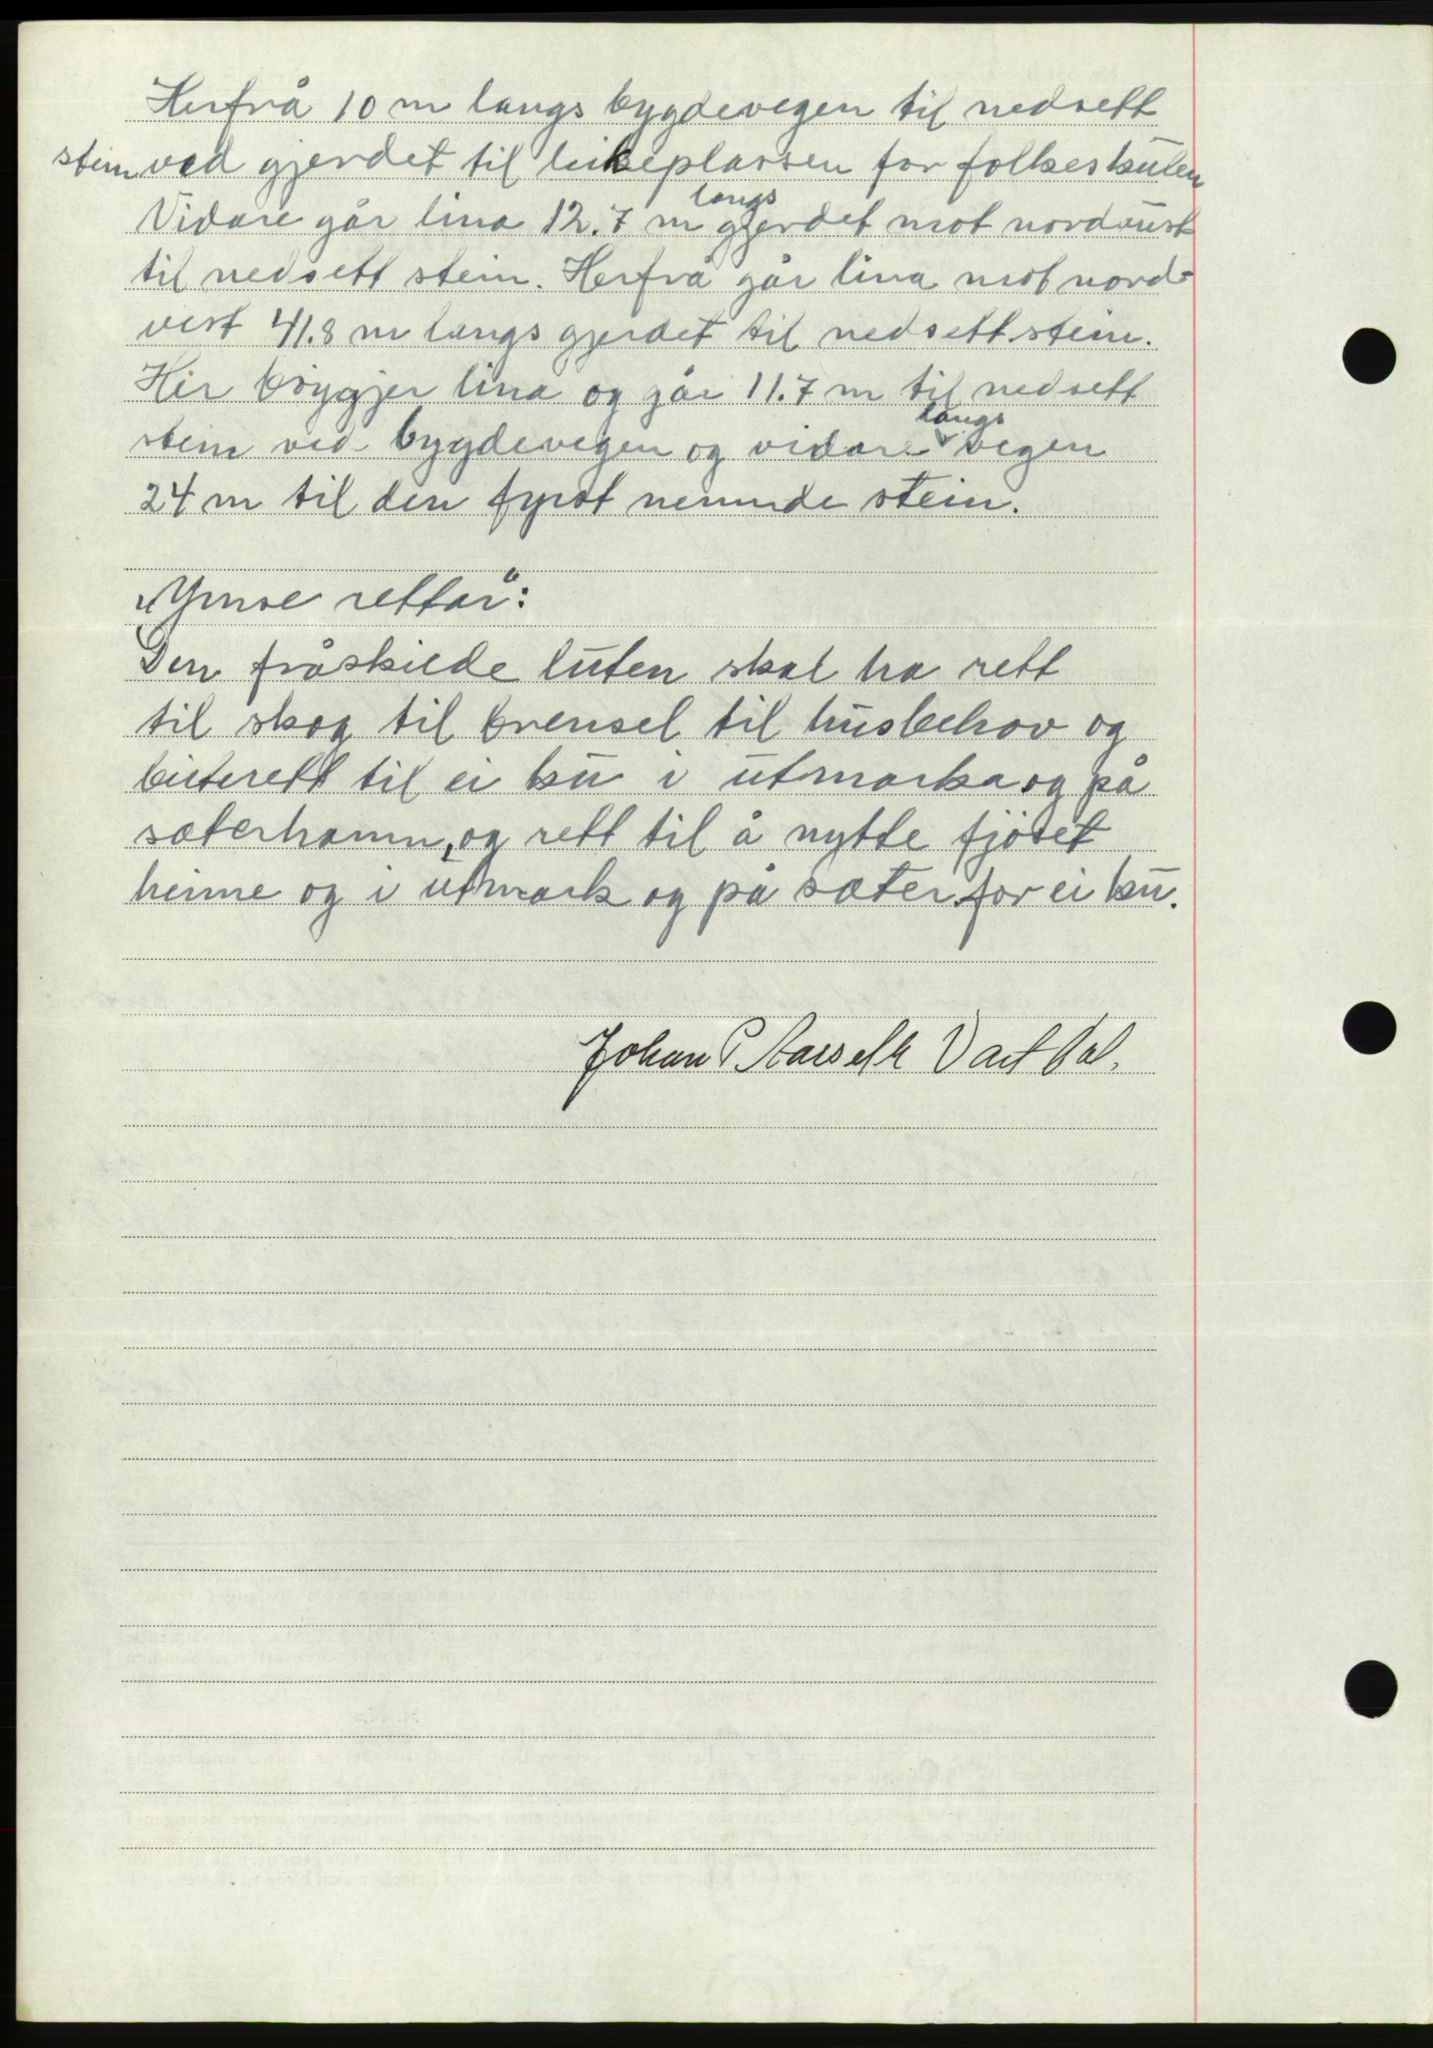 Herfrå 10 m langs bygdevegen til nedsett
stein ved gjerdet til leikeplassen for folkeskulen
Vidare går lina 12.7 m langs gjerdet mot nordaust
til nedsett stein. Herfrå går lina mot nord-
vest 41.8 m langs gjerdet til nedsett stein.
Her bøygjer lina og går 11.7 m til nedsett
stein ved bygdevegen og vidare langs vegen
24 m til den fyrst nemnde stein.
„Ymse rettar“:
Den fråskilde luten skal ha rett
til skog til brensel til husbehov og
beiterett til ei ku i utmarka og på
sæterhamn, og rett til å nytte fjöset
heime og i utmark og på sæter for ei ku.
Johan P Aarseth Vartdal.